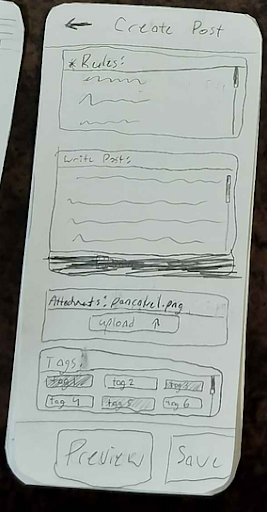 ← Create Post
* Rules:
Write Post:
Attachments: pancake1.png
upload ↑
Tags:
tag 1 tag 2 tag 3
tag 4 tag 5 tag 6
Preview Save